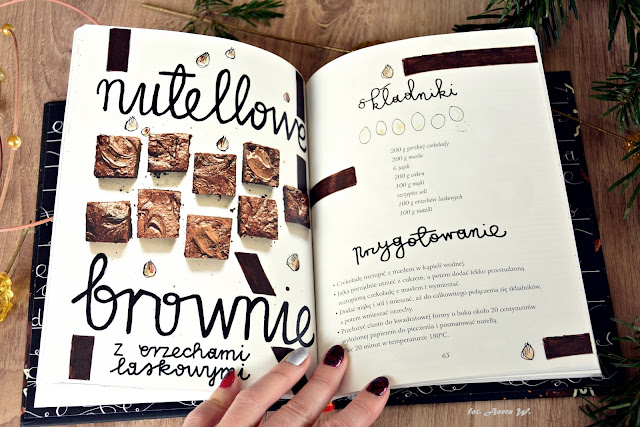 nutellowe
brownie
z orzechami
laskowymi
składniki
200 g gorzkiej czekolady
200 g masła
6 jajek
200 g cukru
100 g mąki
szczypta soli
100 g orzechów laskowych
100 g nutelli
przygotowanie
• Czekoladę roztopić z masłem w kąpieli wodnej.
• Jajka porządnie utrzeć z cukrem, a potem dodać lekko przestudzoną
roztopioną czekoladę z masłem i wymieszać.
• Dodać mąkę i sól i mieszać, aż do całkowitego połączenia się składników,
a potem wmieszać orzechy.
• Przełożyć ciasto do kwadratowej formy o boku około 20 centymetrów
wyłożonej papierem do pieczenia i posmarować nutellą.
20 minut w temperaturze 180°C.
65
fot. Aneta W.